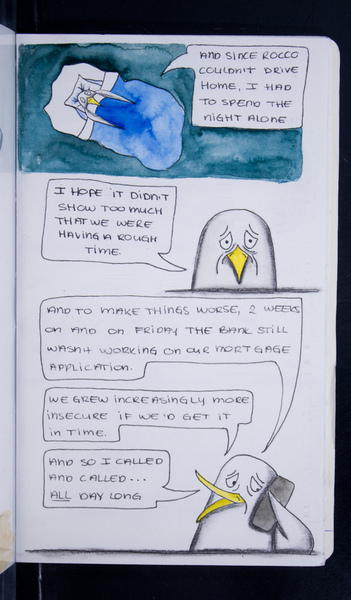 AND SINCE ROCCO
COULDN'T DRIVE
HOME, I HAD
TO SPEND THE
NIGHT ALONE
I HOPE IT DIDN'T
SHOW TOO MUCH
THAT WE WERE
HAVING A ROUGH
TIME.
AND TO MAKE THINGS WORSE, 2 WEEKS
ON AND ON FRIDAY THE BANK STILL
WASN'T WORKING ON OUR MORTGAGE
APPLICATION.
WE GREW INCREASINGLY MORE
INSECURE IF WE'D GET IT
IN TIME.
AND SO I CALLED
AND CALLED...
ALL DAY LONG